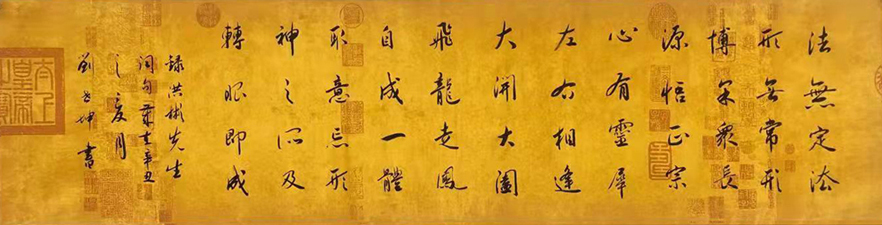 法無定法
形无常形
博采衆長
源悟正宗
心有靈犀
左右相逢
大開大闔
飛龍走鳳
自成一體
取意忘形
神之所及
轉眼即成
錄洪彬先生
詞句歲在辛丑
之夏月
劉坤書